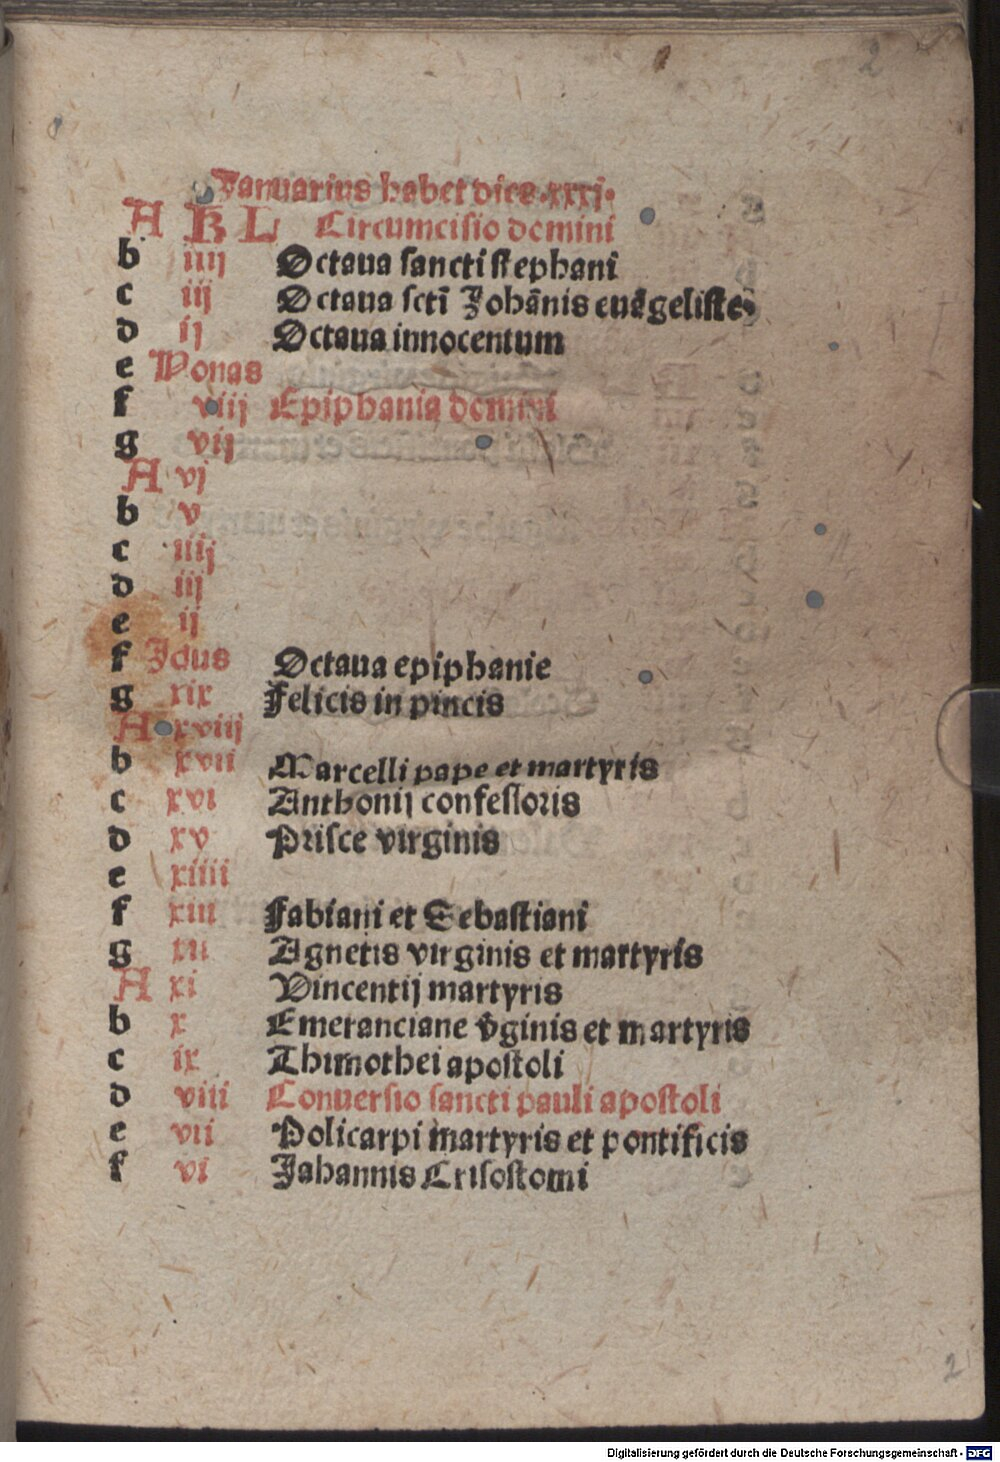 2
Januarius habet dies .xxxj.
A KL Circumcisio domini
b iiij Octaua sancti stephani
c iij Octaua scti̅ Joha̅nis eua̅geliste
d ij Octaua innocentum
e Nonas
f viij Epiphania domini
g vij
A vj
b v
c iiij
d iij
e ij
f Idus Octaua epiphanie
g xix Felicis in pincis
A xviij
b xvii Marcelli pape et martyris
c xvi Anthonij confessoris
d xv Prisce virginis
e xiiii
f xiii Fabiani et Sebastiani
g xii Agnetis virginis et martyris
A xi Vincentij martyris
b x Emeranciane v̾ginis et martyris
c ix Thimothei apostoli
d viii Conuersio sancti pauli apostoli
e vii Policarpi martyris et pontificis
f vi Jahannis Crisostomi
2
Digitalisierung gefördert durch die Deutsche Forschungsgemeinschaft - DFG